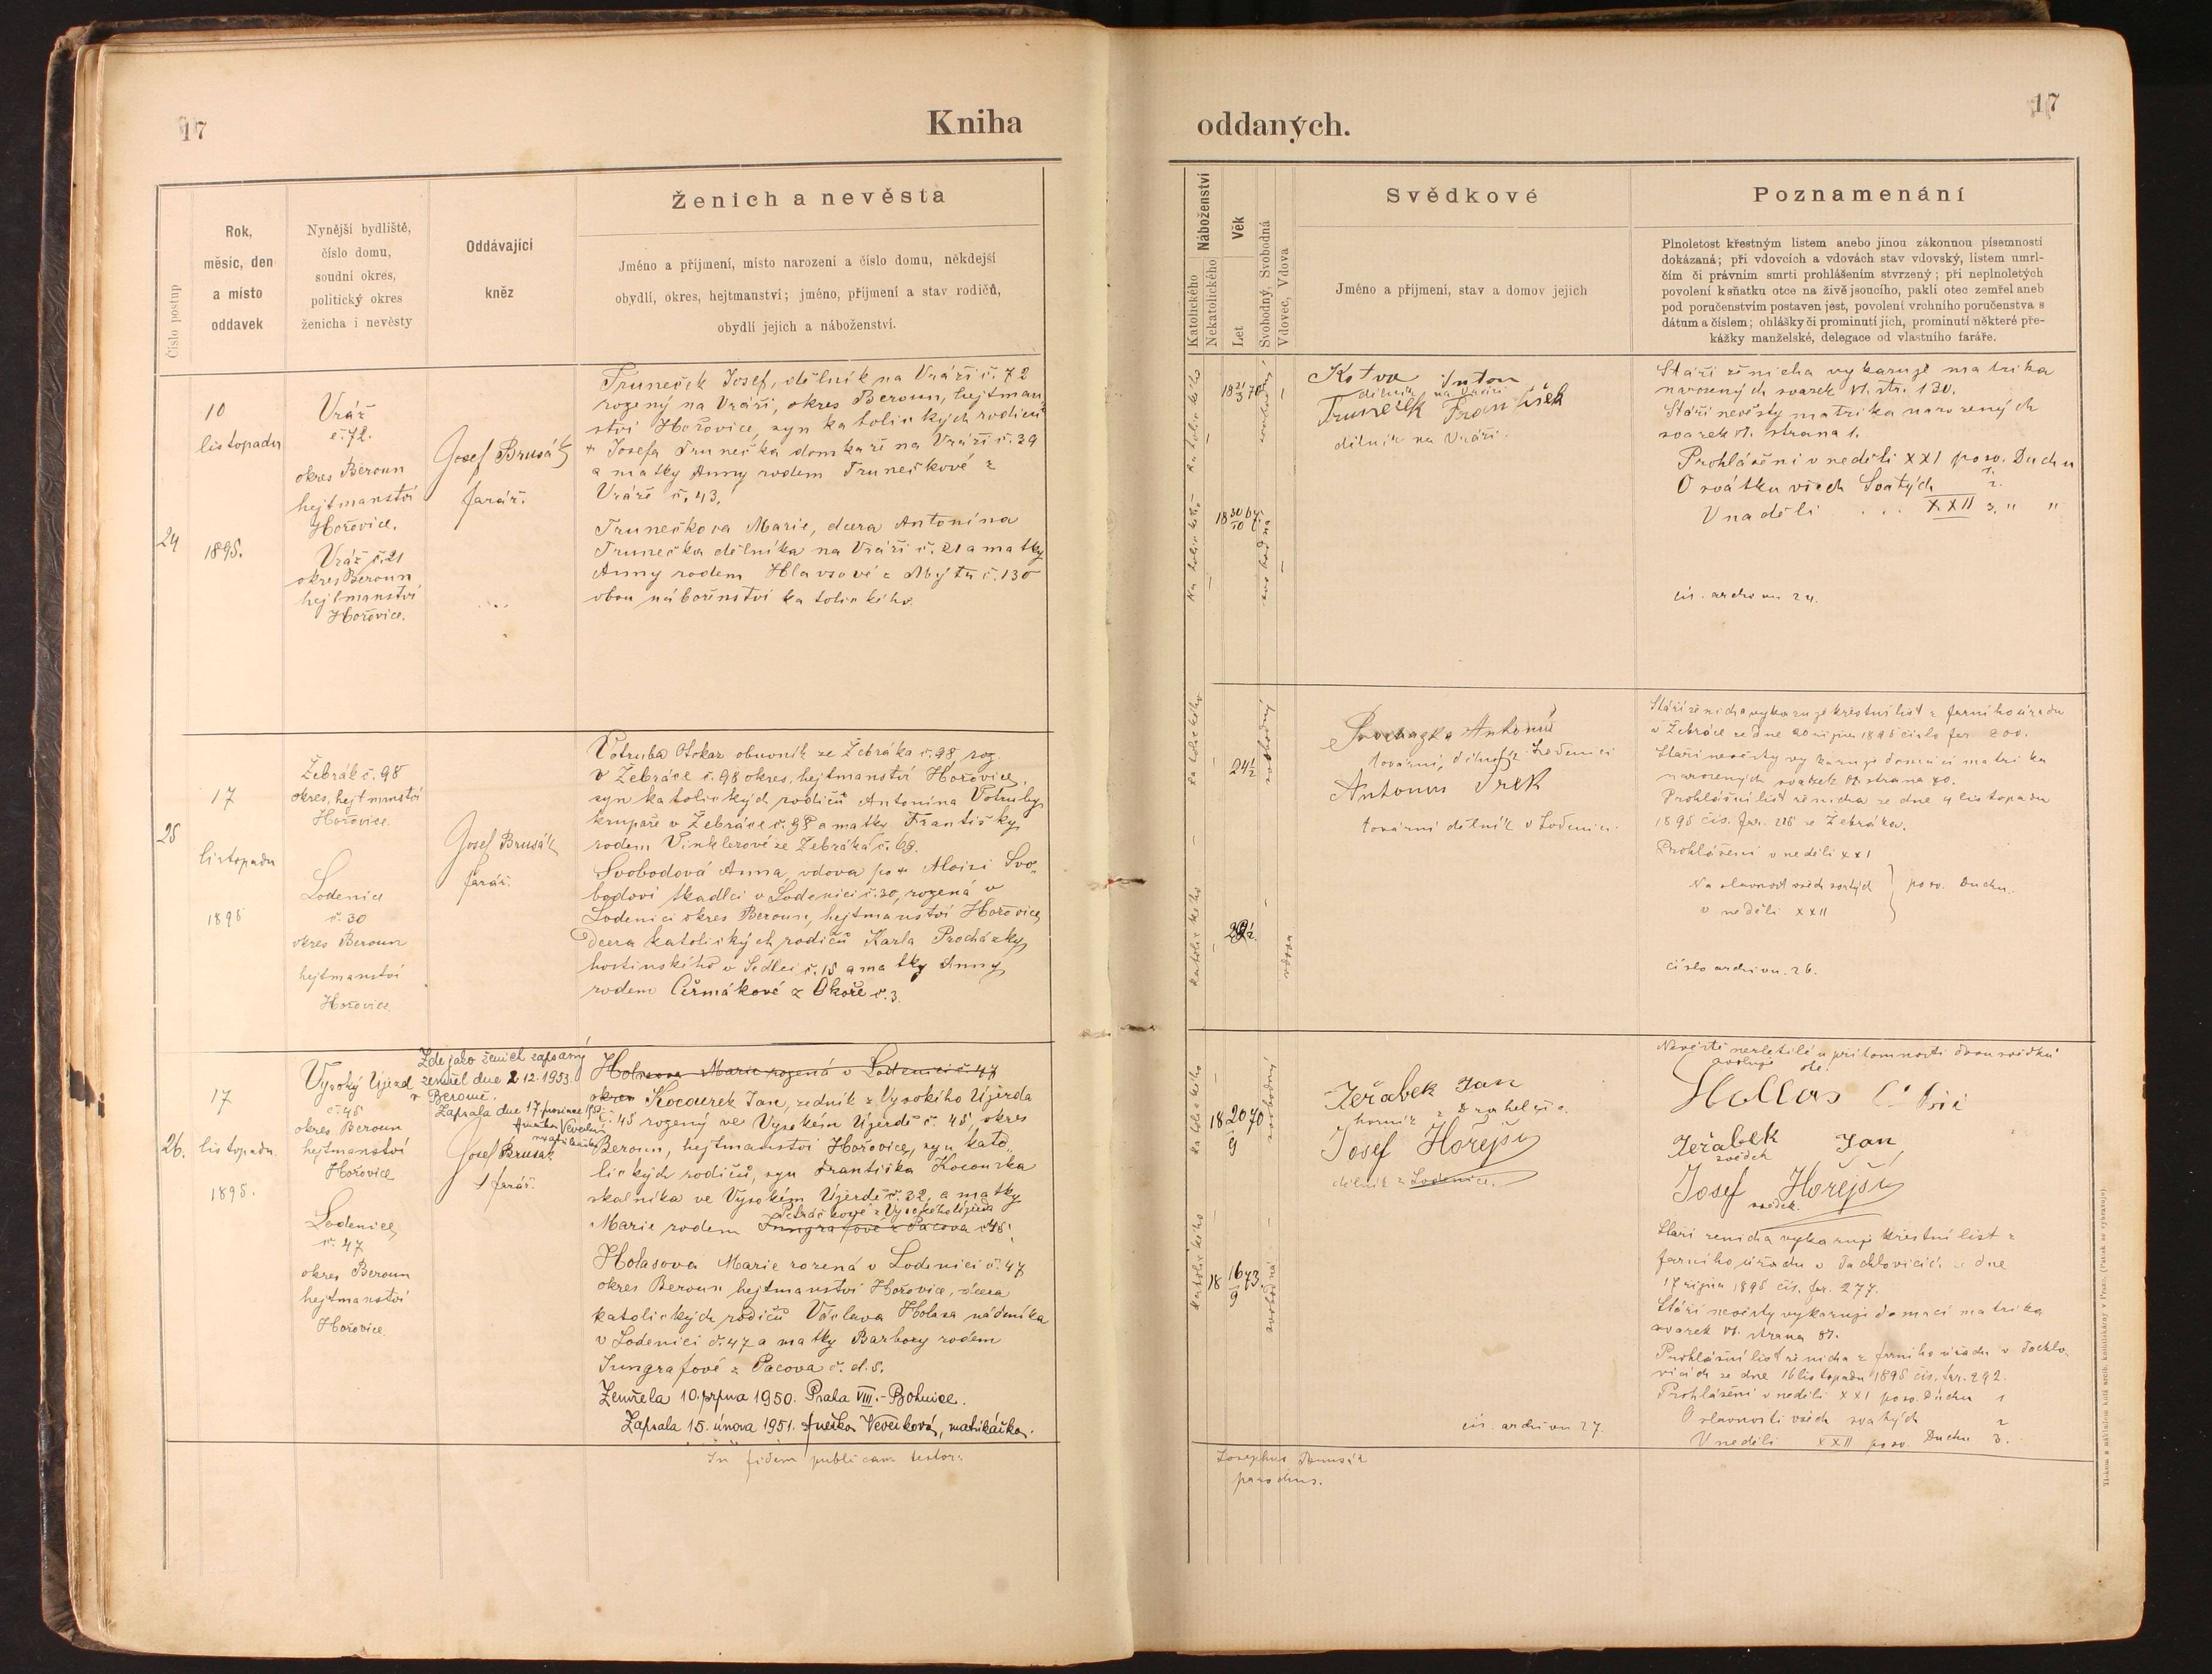 17
Kniha
Číslo postup
Rok,
měsíc, den
a místo
oddavek
Nynější bydliště,
číslo domu,
soudní okres,
politický okres
ženicha i nevěsty
Oddávající
kněz
Ženich a nevěsta
Jméno a příjmení, místo narození a číslo domu, někdejší
obydlí, okres, hejtmanství; jméno, příjmení a stav rodičů,
obydlí jejich a náboženství.
24
10
listopadu
1895.
Vráž
č. 72.
okres Beroun
hejtmanství
Hořovice.
Vráž č. 21
okres Beroun
hejtmanství
Hořovice.
Josef Brusák
farář.
Truneček Josef, dělník na Vráži č. 72
rozený na Vráži, okres Beroun, hejtman-
ství Hořovice, syn katolických rodičů
+ Josefa Trunečka domkáře na Vráži č. 39
a matky Anny rodem Trunečkové z
Vráže č. 43.
Trunečkova Marie, dcera Antonína
Trunečka dělníka na Vráži č. 21 a matky
Anny rodem Hlavsové z Mýta č. 130
obou náboženství katolického.
25
17
listopadu
1895
Žebrák č. 98
okres, hejtmanství
Hořovice.
Lodenice
č. 30
okres Beroun
hejtmanství
Hořovice
Josef Brusák
farář.
Votruba Otokar obuvník ze Žebráka č. 98, roz.
v Žebráce č. 98 okres, hejtmanství Hořovice,
syn katolických rodičů Antonína Votruby
krupaře v Žebráce č. 98 a matky Františky
rodem Vinklerové ze Žebráka č. 69.
Svobodová Anna, vdova po + Aloisi Svo-
bodovi tkadlci v Lodenici č. 30, rozená v
Lodenici okres Beroun, hejtmanství Hořovice,
dcera katolických rodičů Karla Procházky
hostinského v Sedlci č. 15 a matky Anny
rodem Čermákové z Okoře č. 3.
26.
17
listopadu
1895.
Vysoký Újezd
č. 45
okres Beroun
hejtmanství
Hořovice
Lodenice,
č. 47
okres Beroun
hejtmanství
Hořovice.
Zde jako ženich zapsaný
zemřel dne 2. 12. 1953.
v Berouně.
Zapsala dne 17 prosince
Josef Brusák
farář.
Holasova Marie rozená v Lodenici č. 47
okres Kocourek Jan, zedník z Vysokého Újezda
č. 45 rozený ve Vysokém Újezdě č. 45, okres
Beroun, hejtmanství Hořovice, syn kato-
lických rodičů, syn Františka Kocourka
skalníka ve Vysokém Újezdě č. 32, a matky
Petráčkové z Vysokého Újezda
Marie rodem Jungrafové z Pacova č. 45.
Holasova Marie rozená v Lodenici č. 47
okres Beroun hejtmanství Hořovice, dcera
katolických rodičů Václava Holasa nádeníka
v Lodenici č. 47 a matky Barbory rodem
Jungrafové z Pacova č. d. 5.
Zemřela 10. srpna 1950. Praha VIII. - Bohnice.
Zapsala 15. února 1951. Anežka Veverková, matrikářka.
In fidem publicam testor:
17
oddaných.
Náboženství
Katolického
Nekatolického
Věk
Let
Svobodný, Svobodná
Vdovec, Vdova
Svědkové
Jméno a příjmení, stav a domov jejich
Poznamenání
Plnoletost křestným listem anebo jinou zákonnou písemností
dokázaná; při vdovcích a vdovách stav vdovský, listem umrl-
čím či právním smrti prohlášením stvrzený; při neplnoletých
povolení k sňatku otce na živě jsoucího, pakli otec zemřel aneb
pod poručenstvím postaven jest, povolení vrchního poručenstva s
dátum a číslem; ohlášky či prominutí jich, prominutí některé pře-
kážky manželské, delegace od vlastního faráře.
katolického
svobodný
katolického
svobodná
Anton
dělník na Vráži
Truneček František
dělník na Vráži.
Stáří ženicha vykazuje matrika
narozených svazek VI. str. 130.
Stáří nevěsty matrika narozených
svazek VI. strana 1.
Prohlášeni v neděli XXI po sv. Duchu
O svátku všech Svatých 2.
V neděli . . . XXII 3. " "
čís. archivu 24.
katolického
24½
svobodný
katolického
vdova
Procházka Antonín
tovární dělník z Lodenici
Antonín
tovární dělník v Lodenici.
Stáří ženicha vykazuje křestní list z farního úřadu
v Žebráce ze dne 20 října 1895 číslo far. 200.
Stáří nevěsty vykazuje domácí matrika
narozených svazek VI. strana 40.
Prohlášní list ženicha ze dne 4 listopadu
1895 čís. far. 216 ze Žebráka.
Prohlášeni v neděli XXI
Na slavnost všech svatých
v neděli XXII
po sv. Duchu.
číslo archivu. 26.
katolického
18 20/9 70
svobodný
katolického
18 16/9 73.
svobodná
Jeřábek Jan
horník z Drahelčic.
Josef Hořejší
dělník z Lodenice.
Nevěstě nezletilé u přítomnosti dvou svědků
povoluje otec:
Hollas
Jeřábek Jan
svědek
Josef Hořejší
svědek.
Stáří ženicha vykazuje křestní list z
farního úřadu v Tachlovicích ze dne
17 října 1895 čís. far. 277.
Stáří nevěsty vykazuje domácí matrika
svazek VI. strana 87.
Prohlášní list ženicha z farního úřadu v Tachlo-
vicích ze dne 16 listopadu 1895 čís. far. 292.
Prohlášeni v neděli XXI po sv. Duchu 1
O slavnosti všech svatých 2
V neděli XXII po sv. Duchu 3.
čís. archivu 27.
Josephus Brusák
parochus.